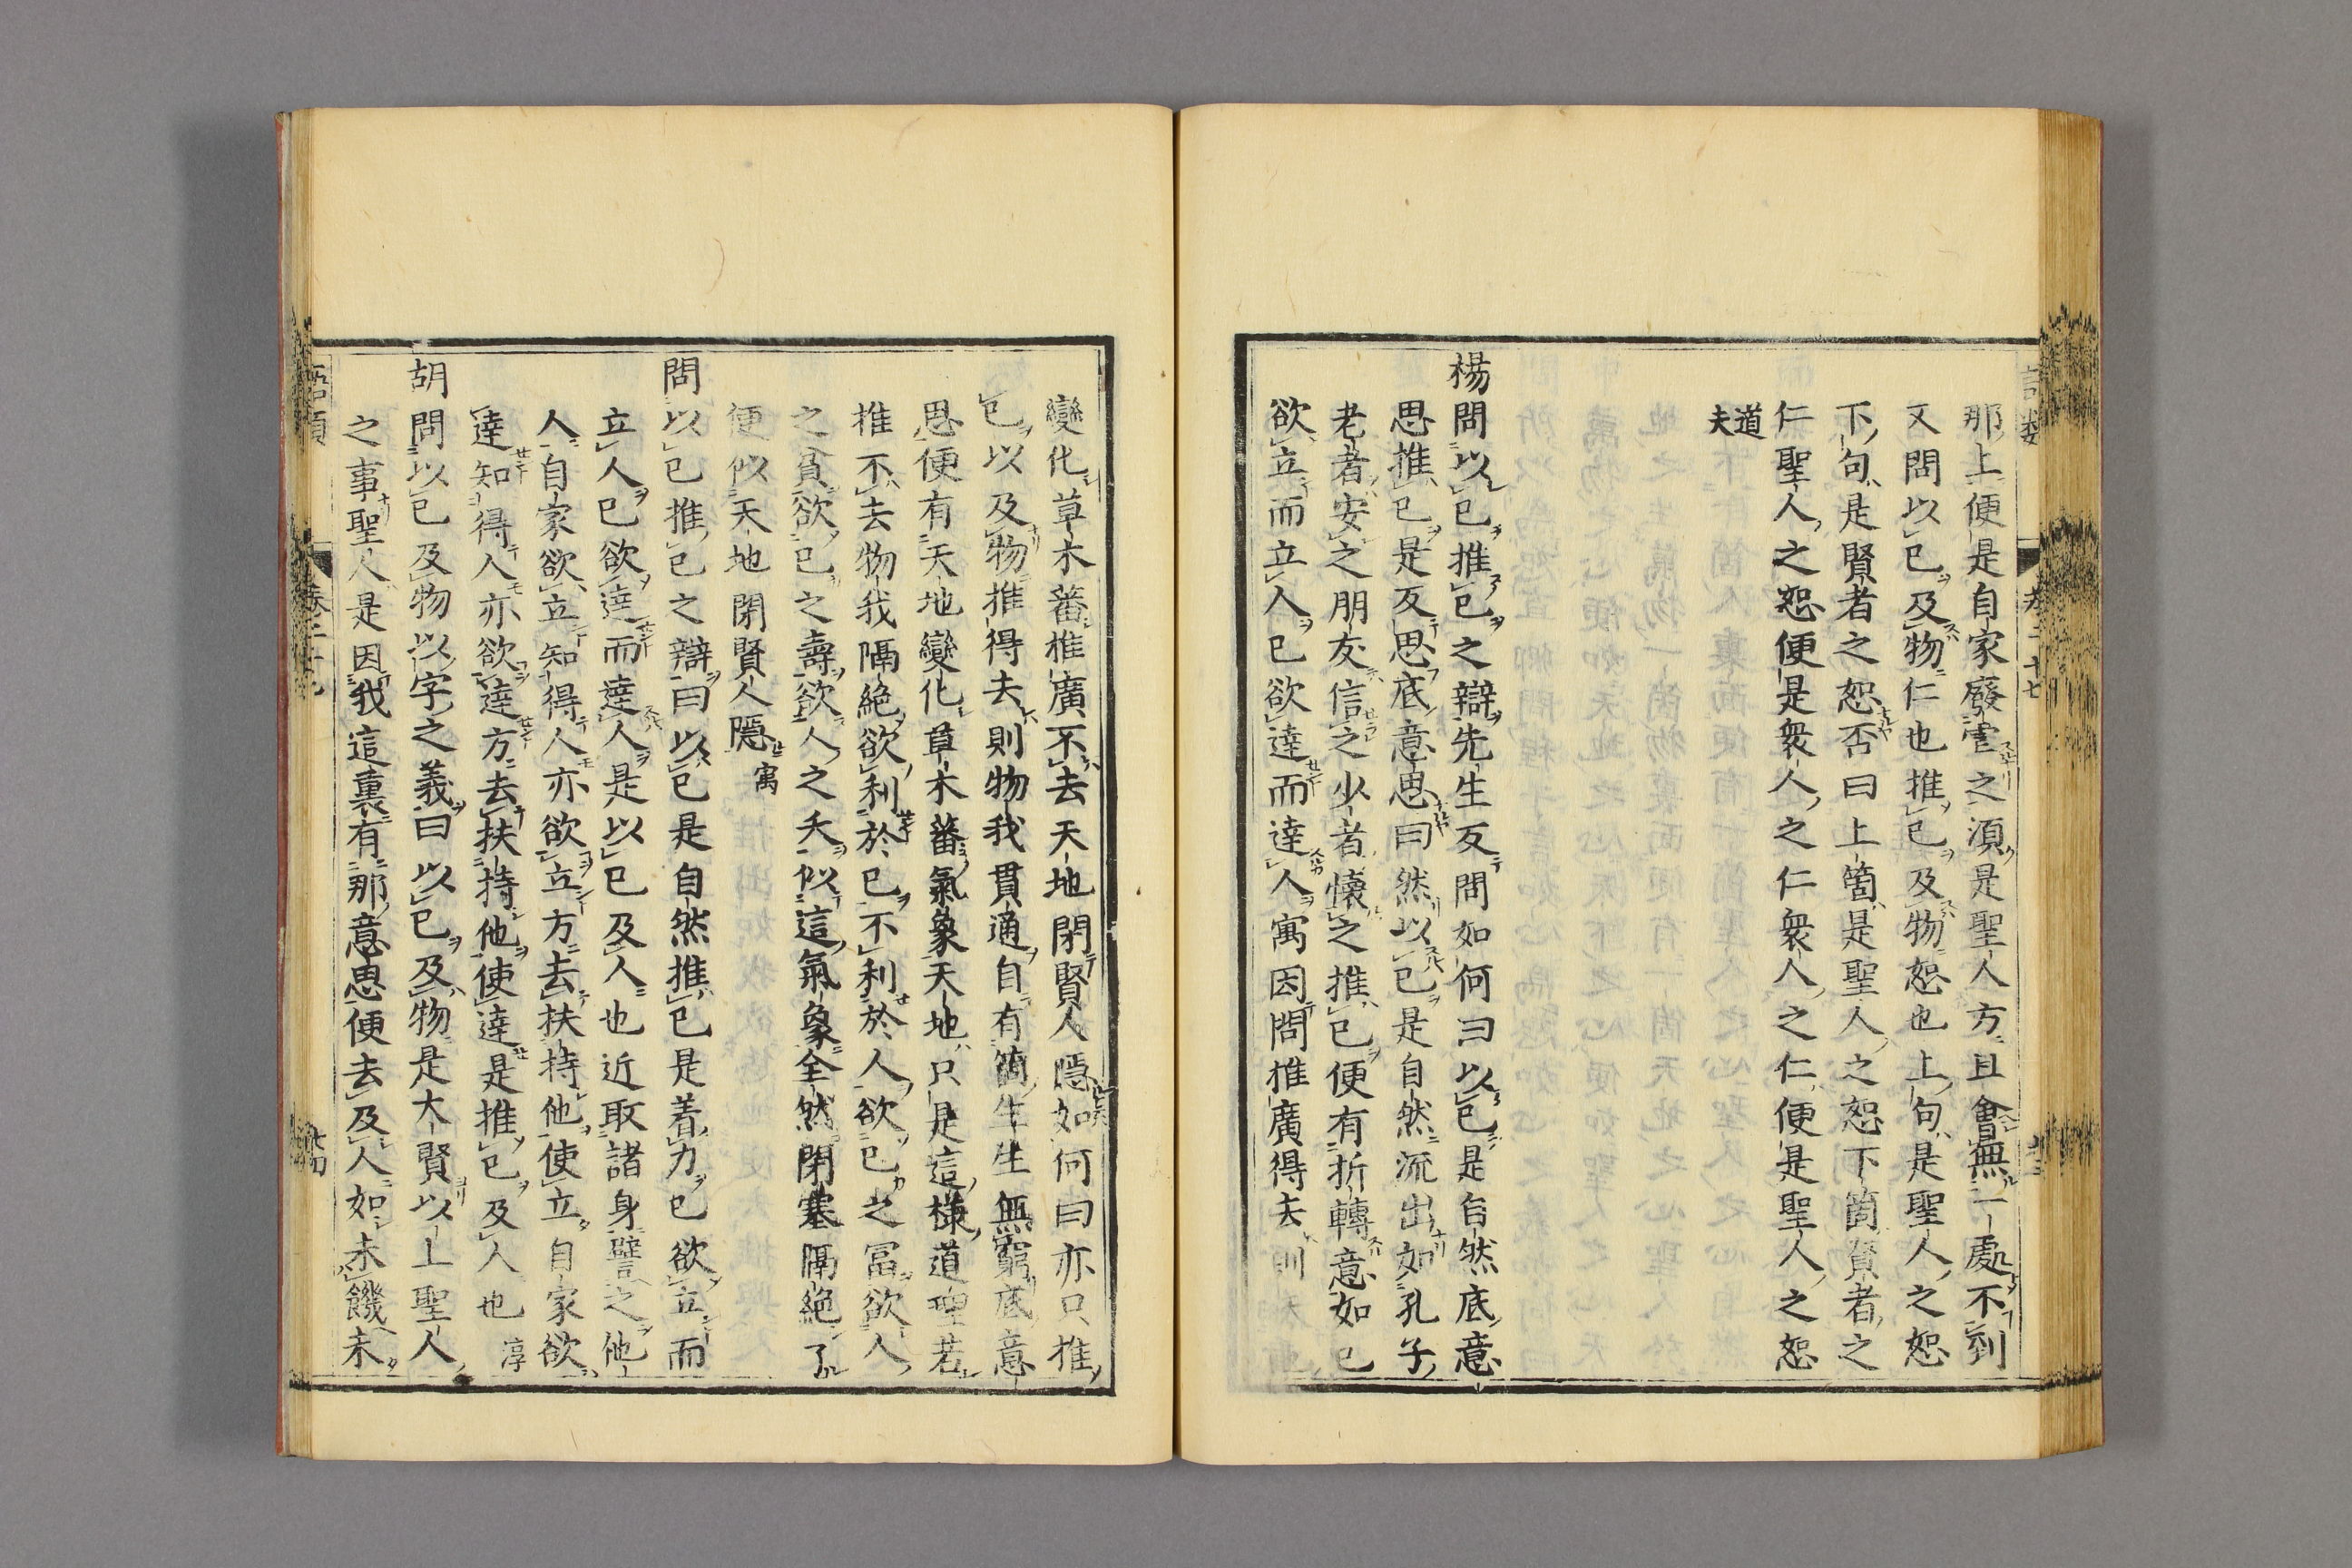 那上便是自家廢雪之須是聖人方且會無一處不到
又問以己及物仁也推己及物恕也上句是聖人之恕
下句是賢者之恕否曰上箇是聖人之恕下箇賢者之
仁聖人之恕便是衆人之仁衆人之仁便是聖人之恕
道夫
楊問以己推己之辯先生反問如何曰以己是自然底意
思推己是反思底意思曰然以己是自然流出如孔子
老者安之朋友信之少者懷之推己便有折轉意如己
欲立而立人己欲達而達人寓因問推廣得去則天地
變化草木蕃推廣不去天地閉賢人隱如何曰亦只推
己以及物推得去則物我貫通自有箇生生無窮底意
思便有天地變化草木蕃氣象天地只是這樣道理若
推不去物我隔絶欲利於己不利於人欲己之冨欲人
之貧欲己之壽欲人之夭似這氣象全然閉塞隔絶了
便似天地閉賢人隱 寓
問以己推己之辯曰以己是自然推己是着力己欲立而
立人己欲達而達人是以己及人也近取諸身譬之他
人自家欲立知得人亦欲立方去扶持他使立自家欲
達知得人亦欲達方去扶持他使達是推己及人也 淳
胡問以己及物以字之義曰以己及物是大賢以上聖人
之事聖人是因我這裏有那意思便去及人如未饑未